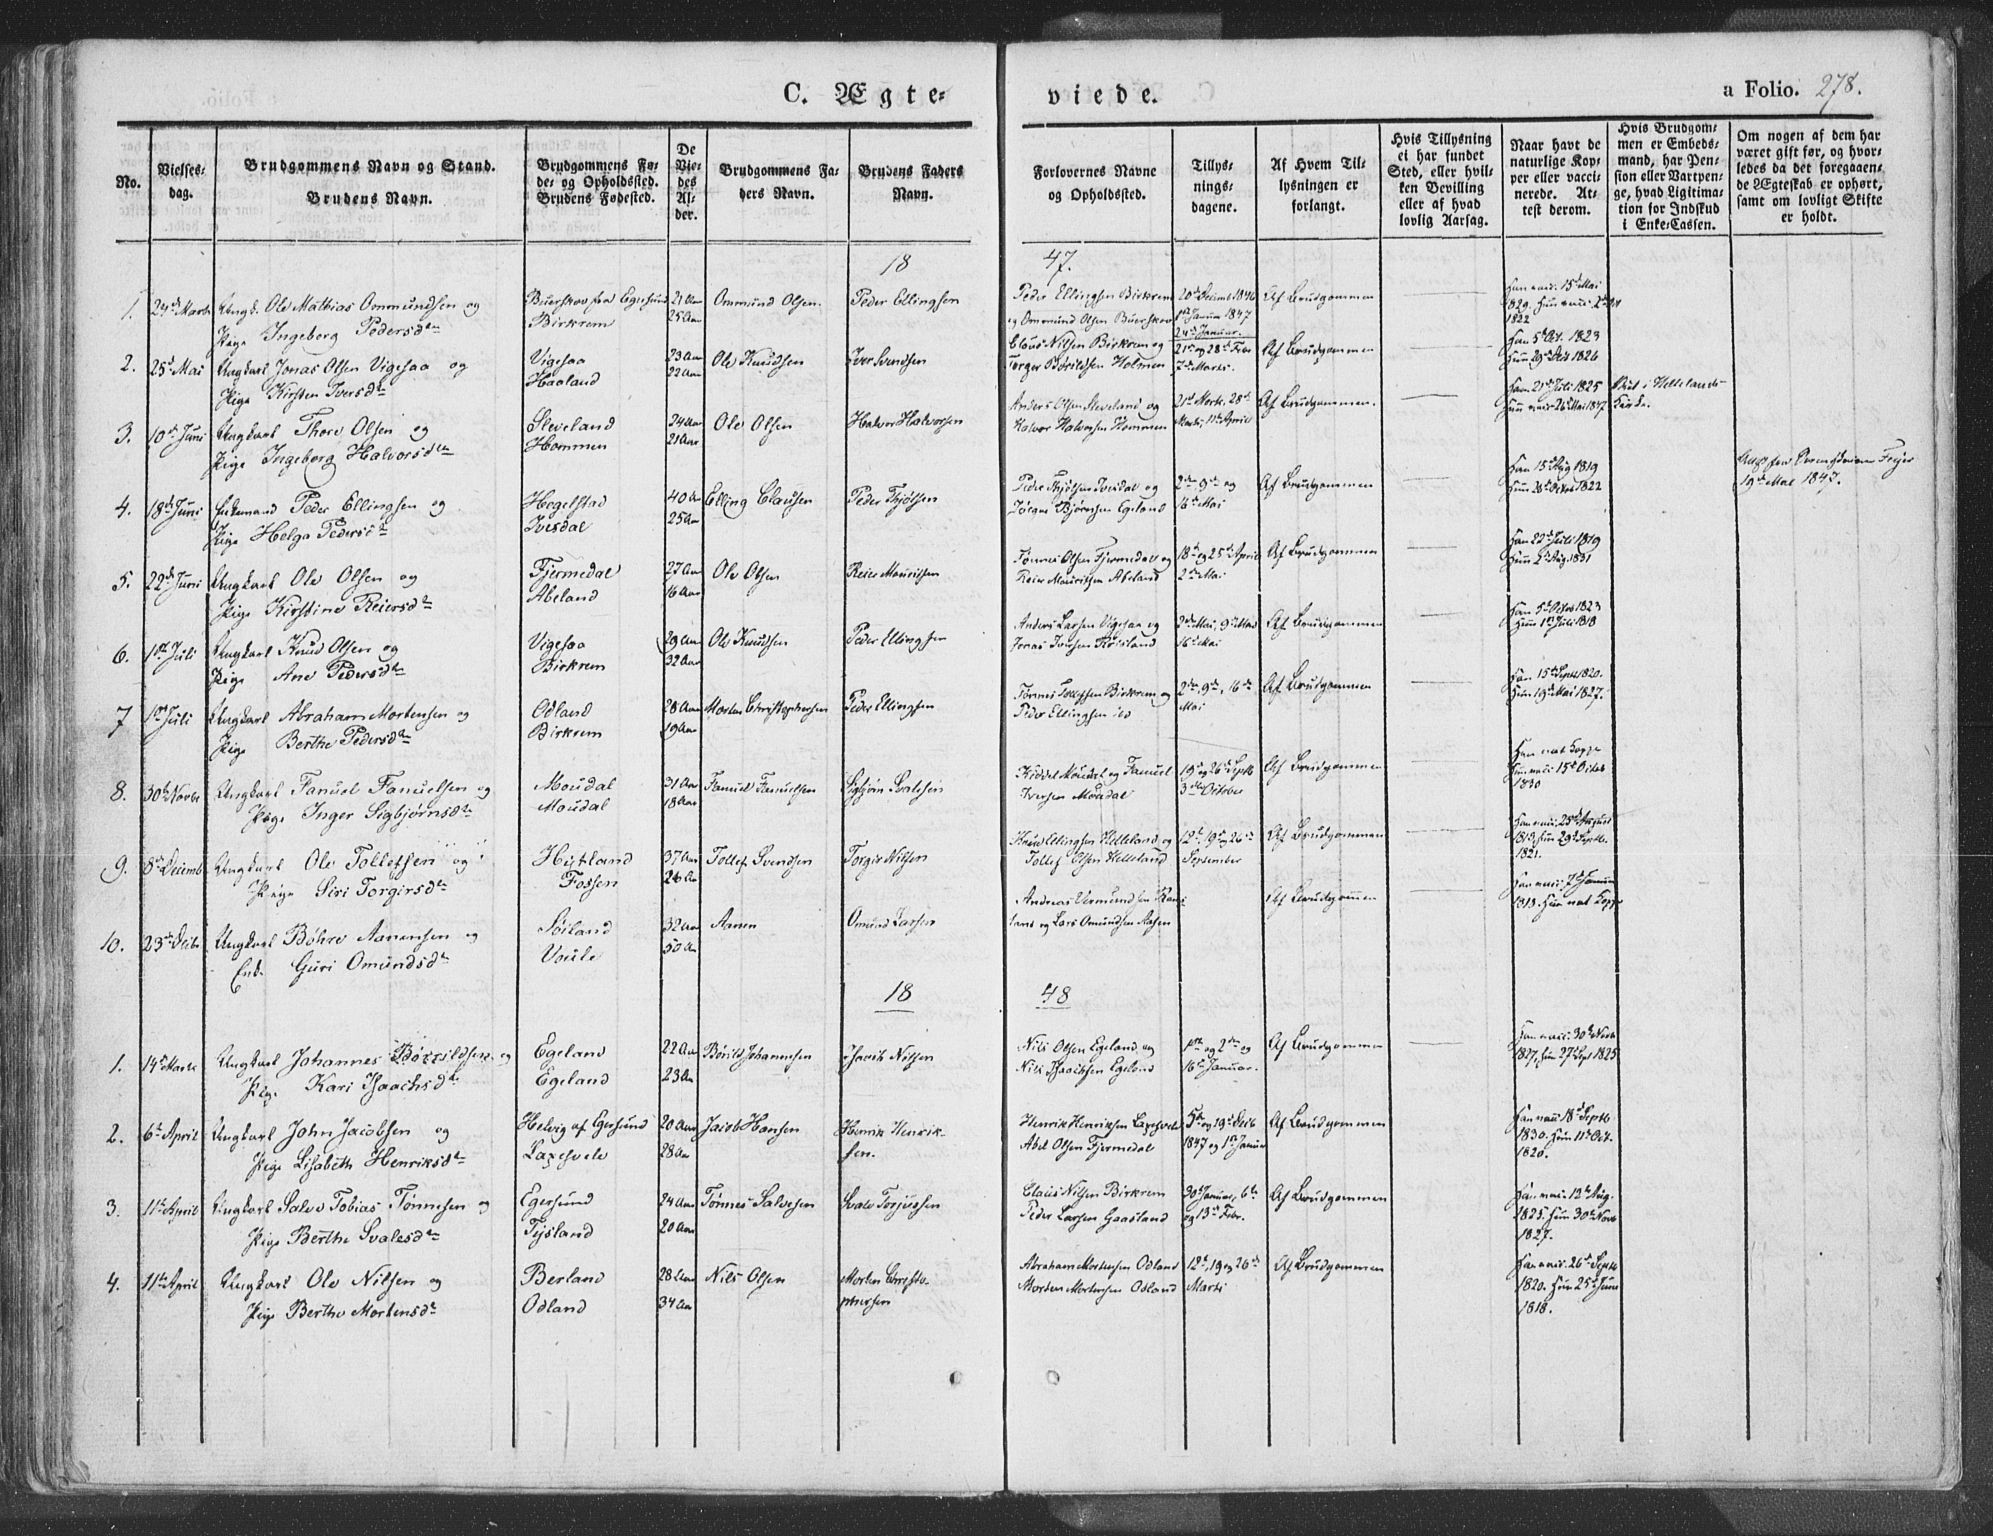 C. Ægte-
viede.
a Folio. 278.
No.
Vielses-
dag.
Brudgommens Navn og Stand.
Brudens Navn.
Brudgommens Fø-
de- og Opholdssted.
Brudens Fødested.
De
Vie-
des
Al-
der.
Brudgommens Fa-
ders Navn.
Brudens Faders
Navn.
Forlovernes Navne
og Opholdssted.
Tillys-
nings-
dagene.
Af Hvem Til-
lysningen er
forlangt.
Hvis Tillysning
ei har fundet
Sted, eller hvil-
ken Bevilling
eller af hvad
lovlig Aarsag.
Naar havt de
naturlige Kop-
per eller vacci-
nerede. At-
test derom.
Hvis Brudgom-
men er Embeds-
mand, har Pen-
sion eller Vartpen-
ge, hvad Ligitima-
tion for Indskud
i Enke-Cassen.
Om nogen af dem har
været gift før, og hvor-
ledes da det foregaaen-
de Ægteskab er ophørt,
samt om lovligt Skifte
er holdt.
18 47.
1. 24de Marts Ungk. Ole Mathias Ommundsen og Buerskov fra Egersund 21 Aar Ommund Olsen Peder Ellingsen Peder Ellingsen Birkrem 20de Decemb 1846 Af Brudgommen Han vacc. 15de Mai
Pige Ingeborg Pedersdtr Birkrem 25 Aar og Ommund Olsen Buerskov 1ste Januar 1847 1829. Hun vacc. 2de
24de Januar. 1822
2. 25de Mai Ungkarl Jonas Olsen Vigesaa og Vigesaa 23 Aar Ole Knudsen Iver Svendsen Claus Nilsen Birkrem og 21de og 28de Febr Af Brudgommen Han 5te Oct. 1823
Pige Kirsten Iversdtr Haaland 22 Aar Torger Børildsen Holmen 7de Marts. Hun 29de Decb 1826
3. 10de Juni Ungkarl Thore Olsen og Sleveland 24 Aar Ole Olsen Halvor Halvorsen Anders Olsen Sleveland og 21de Marts, 28de Af Brudgommen. Han 21de Juli 1825 Viet i Hellelands
Pige Ingeborg Halvorsdtr Hommen 21 Aar Halvor Halvorsen Hommen Marts, 11te April Hun vacc 26de Mai 1847 Kirke.
4. 18de Juni Enkemand Peder Ellingsen og Hegelstad 40 Aar Elling Clausen Peder Thjøtsen Peder Thjøtsen Ivesdal og 2de, 9de og Af Brudgommen Han 15de Aug 1819
Pige Helga Pedersdtr Ivesdal 25 Aar Jørgen Bjørnsen Egeland 16de Mai Hun 28de Octbr 1822
19de Mai 1847.
5. 22de Juni Ungkarl Ole Olsen og Fjermedal 27 Aar Ole Olsen Reier Mauritsen Tønnes Olsen Fjermedal og 18de og 25de April Af Brudgommen Han 22de Juli 1819
Pige Kirstine Reiersdtr Abeland 16 Aar Reier Mauritsen Abeland 2de Mai Hun 2de Aug. 1831
6. 1ste Juli Ungkarl Knud Olsen og Vigesaa 29 Aar Ole Knudsen Peder Ellingsen Anders Larsen Vigesaa og 2de Mai, 9de Mai Af Brudgommen Han 5te Octbr 1823
Pige Ane Pedersdtr Birkrem 32 Aar Jonas Iversen Røisland 16de Mai Hun 1ste Juli 1818
7 1ste Juli Ungkarl Abraham Mortensen og Odland 28 Aar Morten Christophersen Peder Ellingsen Tønnes Tollefsen Birkrem og 2de, 9de, 16de Af Brudgommen Han 15de Septb 1820.
Pige Berthe Pedersdtr Birkrem 19 Aar Peder Ellingsen ibd Mai Hun 19de Mai 1827.
8. 30te Novbr Ungkarl Fanuel Fanuelsen og Moudal 31 Aar Fanuel Fanuelsen Sigbjørn Svalesen Kiddel Moudal og Fanuel 19de og 26de Septb Af Brudgommen Han nat Kopper
Pige Inger Sigbjørnsdtr Moudal 18 Aar Iversen Moudal 3die October Hun vacc 15de Octbr
1830
9. 8de Decemb Ungkarl Ole Tollefsen og Hytland 37 Aar Tollef Svendsen Torgir Nilsen Knud Ellingsen Helleland og 12te, 19de og 26de Af Brudgommen Han vacc. 25de August
Pige Siri Torgirsdtr Fossen 26 Aar Tollef Olsen Helleland September 1813. Hun 29de Septb.
1821.
10. 23de Decbr Ungkarl Bøhre Aanensen og Søiland 32 Aar Aanen Omund Larsen Andreas Vermundsen Af Brudgommen Han vacc. 7de Januar
Enke Guri Omundsdtr Voule 50 Aar og Lars Omundsen Aasen 1813. Hun nat Kopper
18 48
1. 14de Marts Ungkarl Johannes Børrildsen og Egeland 22 Aar Børild Johannesen Isacik Nilsen Nils Olsen Egeland og 1ste og 2den og Af Brudgommen Han vacc. 30te Novb
Pige Kari Isaachsdtr Egeland 23 Aar Nils Isaachsen Egeland 16de Januar. 1827, Hun 27de Sept 1825
2. 6te April Ungkarl John Jacobsen og Helvig af Egersund 20 Aar Jacob Hansen Henrik Henrik- Henrik Henriksen Laxesvele 5te og 19de Decb Af Brudgommen Han vacc 18de Septb
Pige Lisabeth Henriksdtr Laxesvele 28 Aar sen. Abel Olsen Fjermedal 1847 og 1ste Januar 1830. Hun 11te Oct.
1820.
3. 11te April Ungkarl Salve Tobias Tønnesen og Egersund 24 Aar Tønnes Salvesen Svale Torjussen Claus Nilsen Birkrem 30te Januar, 6te Af Brudgommen Han vacc. 12te Aug.
Pige Berthe Svalesdtr Tysland 20 Aar Peder Larsen Gaasland og 13de Febr. 1825. Hun 30te Novb
1827.
4. 11te April Ungkarl Ole Nilsen og Berland 28 Aar Nils Olsen Morten Christo- Abraham Mortensen Odland 12te, 19 og 26de Af Brudgommen Han vacc. 26de Septb
Pige Berthe Mortensdtr Odland 34 Aar phersen Morten Mortensen Odland Marts 1820. Hun 25de Juni
1818.